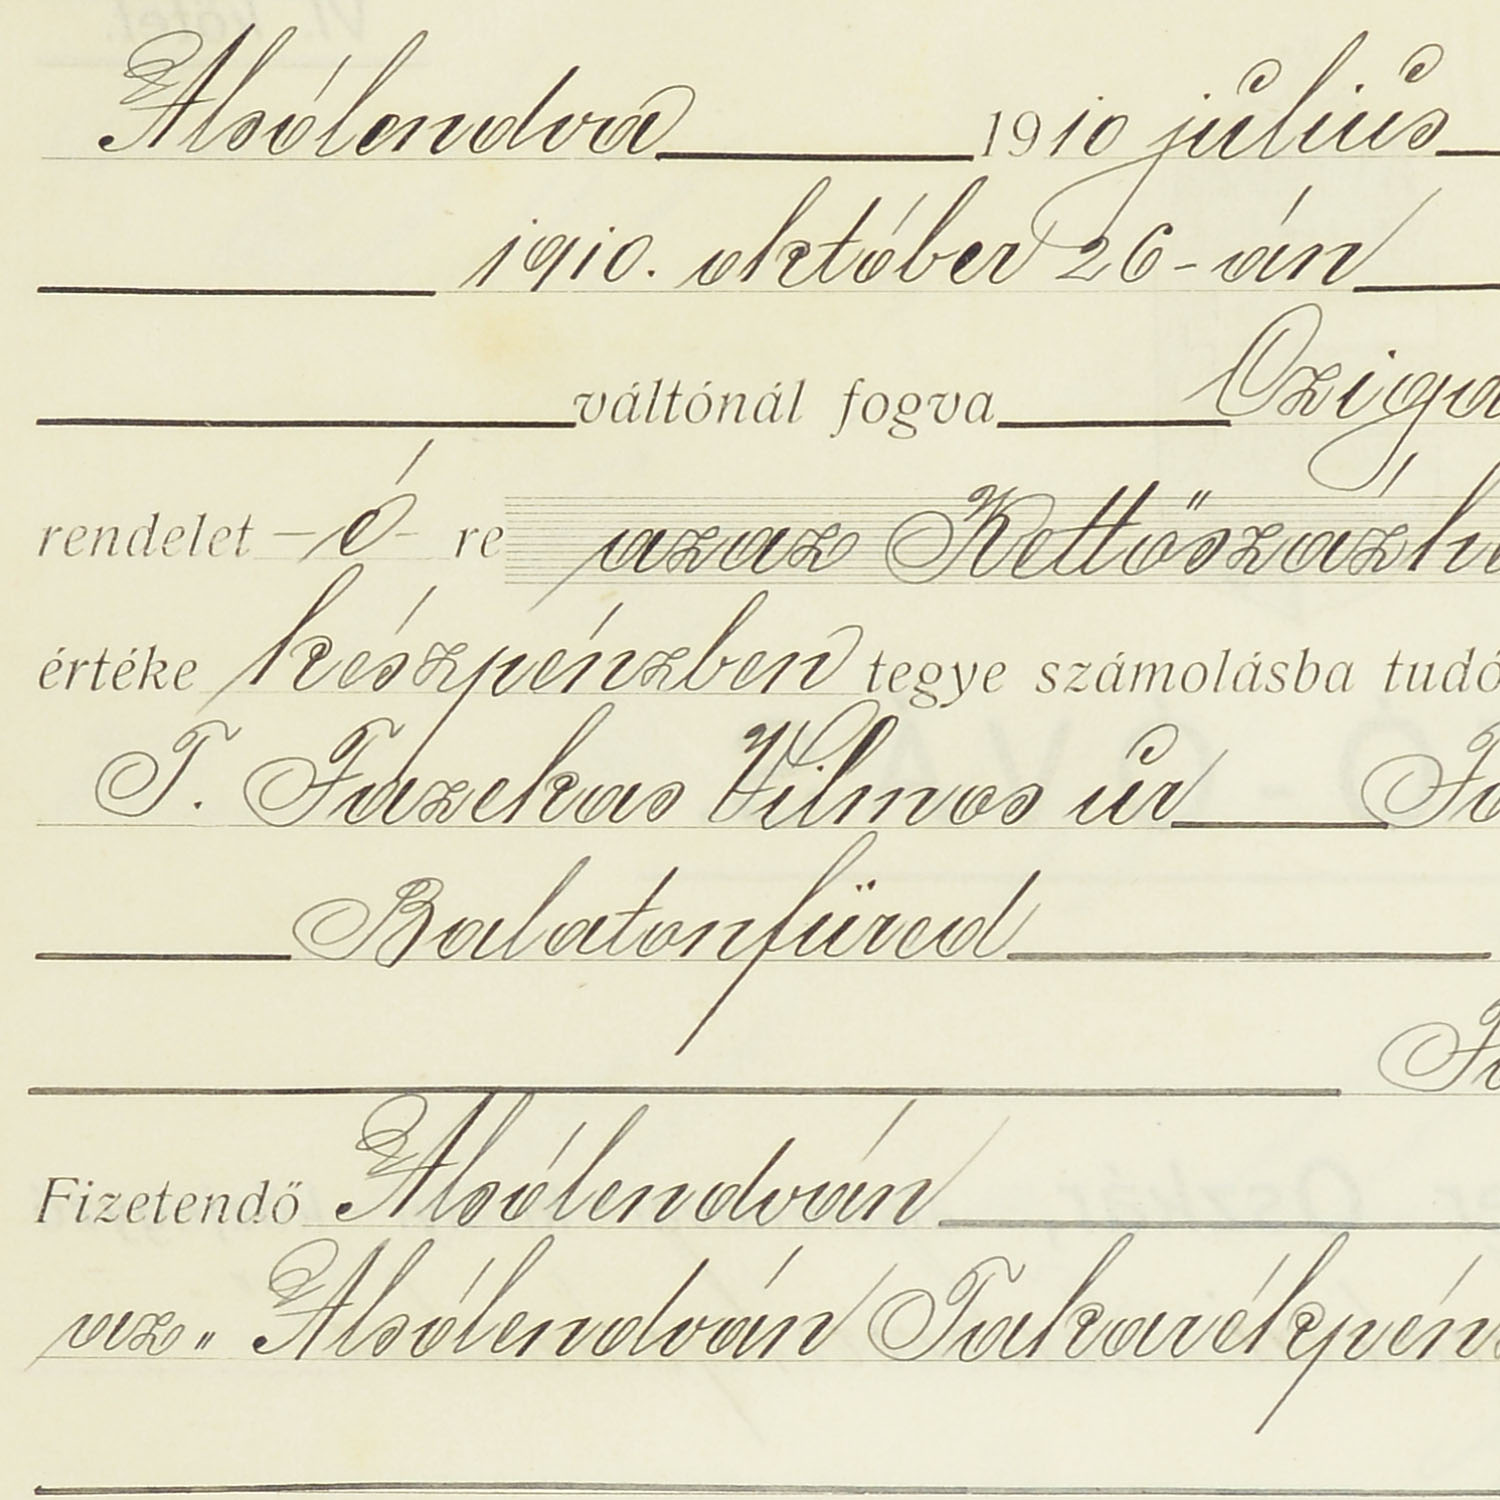 Alsólendva 1910 július
1910. október 26-án
váltónál fogva Cziga
rendelet -é- re azaz Kettőszázhu
értéke készpénzben tegye számolásba tudó
T. Fazekas Vilmos úr
Balatonfüred
Fizetendő Alsólendván
az „ Alsólendván Takarékpén